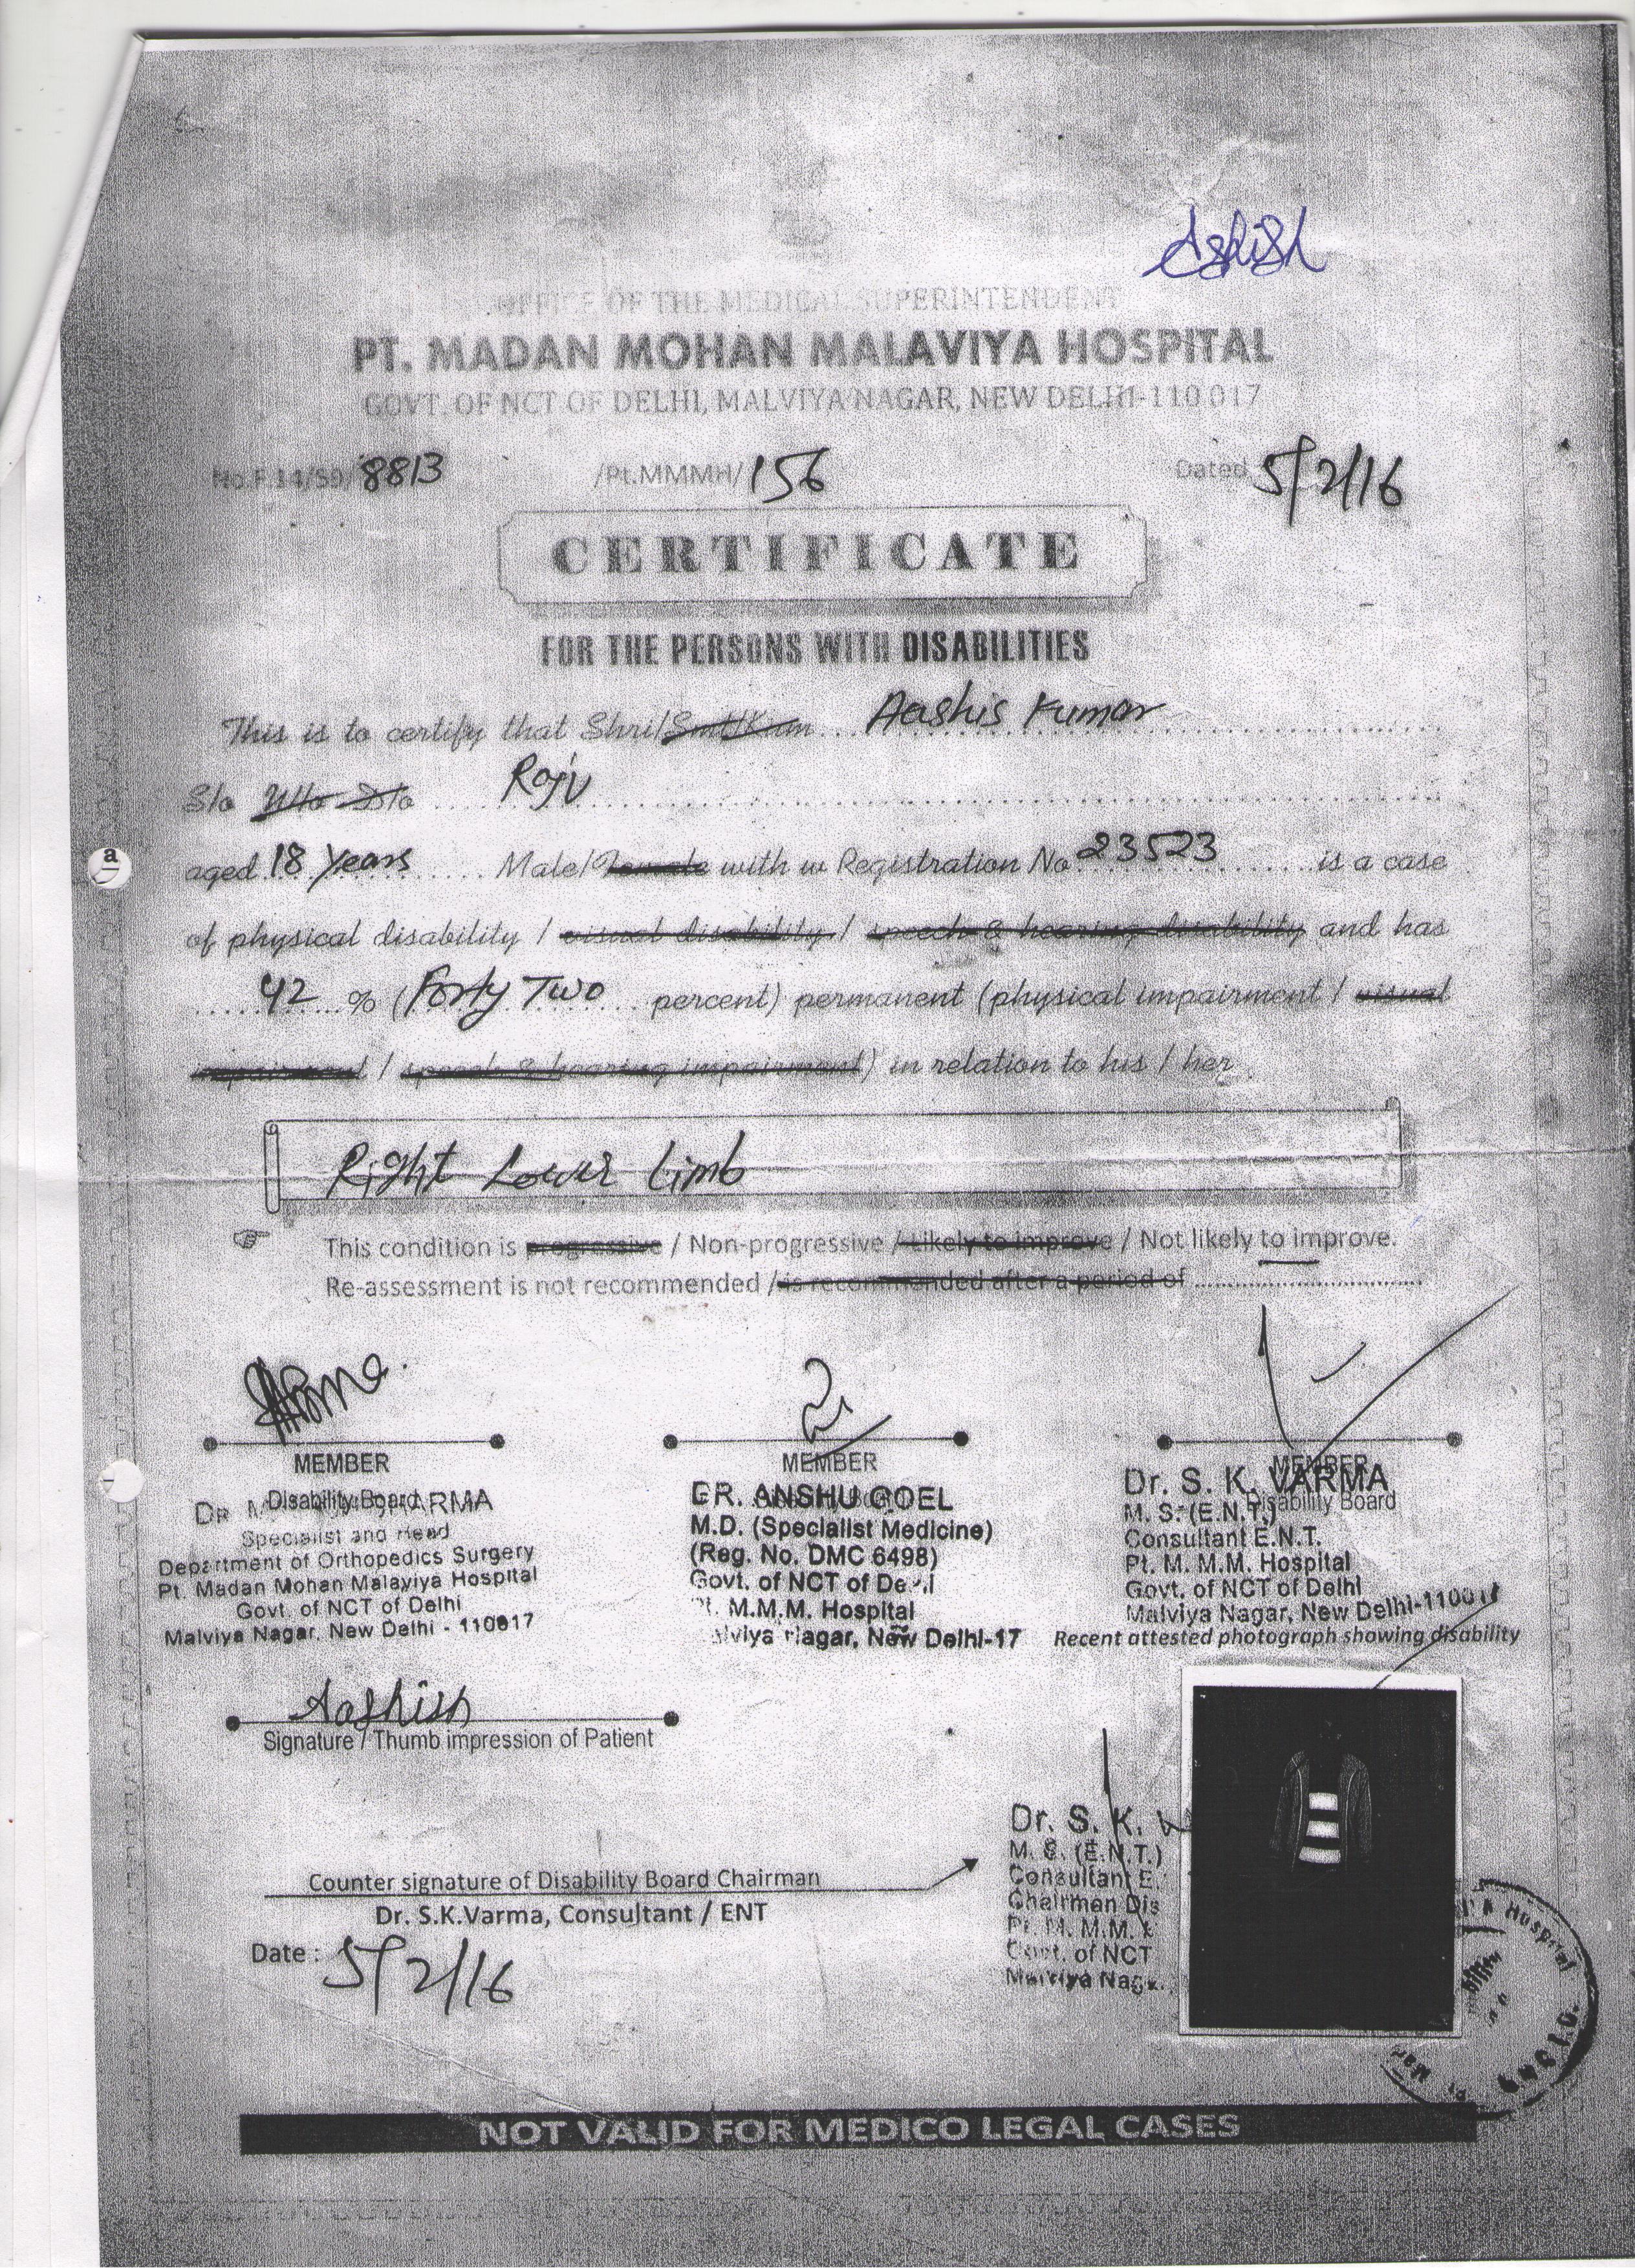 Ashish
OFFICE OF THE MEDICAL SUPERINTENDENT
PT. MADAN MOHAN MALAVIYA HOSPITAL
GOVT. OF NCT OF DELHI, MALVIYA NAGAR, NEW DELHI-110 017
No.F.14/59/8813 /Pt.MMMH/156 Dated 5/2/16
CERTIFICATE
FOR THE PERSONS WITH DISABILITIES
This is to certify that Shri/Smt/Kum Aashis Kumar
S/o W/o D/o Raju
aged 18 years Male/Female with w Registration No 23523 is a case
of physical disability / visual disability / speech & hearing disability and has
42 % (Forty Two percent) permanent (physical impairment / visual
impairment / speech & hearing impairment) in relation to his / her
Right Lower Limb
This condition is progressive / Non-progressive / Likely to improve / Not likely to improve.
Re-assessment is not recommended / is recommended after a period of
MEMBER
Disability Board
Specialist and Head
Department of Orthopedics Surgery
Pt. Madan Mohan Malaviya Hospital
Govt. of NCT of Delhi
Malviya Nagar, New Delhi - 110017
MEMBER
DR. ANSHU GOEL
M.D. (Specialist Medicine)
(Reg. No. DMC 6498)
Govt. of NCT of Delhi
Pt. M.M.M. Hospital
Malviya Nagar, New Delhi-17
MEMBER
Disability Board
Dr. S. K. VARMA
M. S. (E.N.T.)
Consultant E.N.T.
Pt. M. M.M. Hospital
Govt. of NCT of Delhi
Malviya Nagar, New Delhi-110017
Recent attested photograph showing disability
Aashish
Signature / Thumb impression of Patient
Dr. S. K.
M. S. (E.N.T.)
Consultant E.
Chairman Dis
Pt. M. M.M.
Govt. of NCT
Malviya Nag
Counter signature of Disability Board Chairman
Dr. S.K.Varma, Consultant / ENT
Date : 5/2/16
Hospital
NOT VALID FOR MEDICO LEGAL CASES